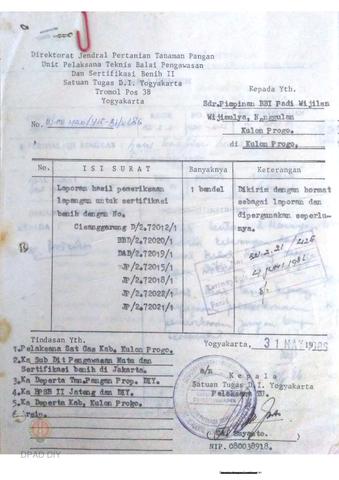 Direktorat Jendral Pertanian Tanaman Pangan
Unit Pelaksana Teknis Balai Pengawasan
Dan Sertifikasi Benih II
Satuan Tugas D.I. Yogyakarta
Tromol Pos 38
Yogyakarta
Kepada Yth.
Sdr.Pimpinan BBI Padi Wijilan
Wijimulya, Nanggulan
Kulon Progo.
di Kulon Progo.
No.
No. ISI SURAT Banyaknya Keterangan
Laporan hasil pemeriksaan lapangan untuk sertifikasi benih dengan No.
Cisanggarung D/2.72012/1
BBI/2.72020/1
DAD/2.72019/1
JP/2.72015/1
JP/2.72018/1
JP/2.72022/1
JP/2.72021/1
1 bendel
Dikirim dengan hormat
sebagai laporan dan
dipergunakan seperlu-
nya.
Tindasan Yth.
1.Pelaksana Sat Gas Kab. Kulon Progo.
2.Ka Sub Dit Pengawasan Mutu dan
Sertifikasi benih di Jakarta.
3.Ka Deperta Tan.Pangan Prop. DIY.
4.Ka BPSB II Jateng dan DIY.
5.Ka Deperta Kab. Kulon Progo.
6.Arsip.
Yogyakarta, 31 MAY 1986
a/n Kepala
Satuan Tugas D.I. Yogyakarta
Pelaksana TU.
NIP. 080038918.
DPAD DIY